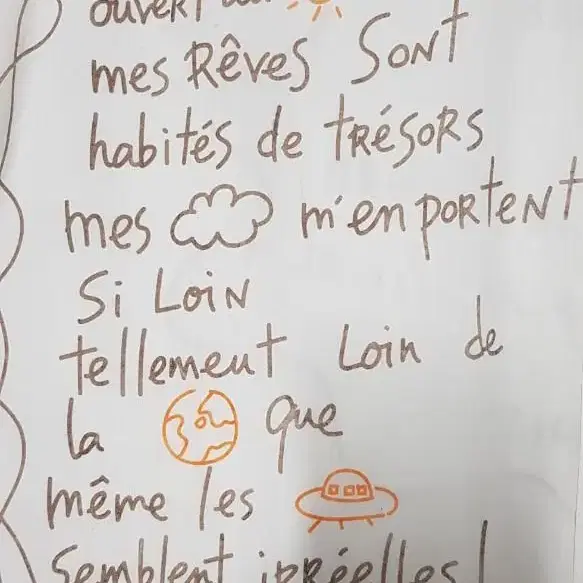 ouvert
mes Rêves SoNt
habités de tRésoRs
mes m'en poRteNt
Si LoiN
tellement Loin de
la que
même les
Semblent iRRéelles!